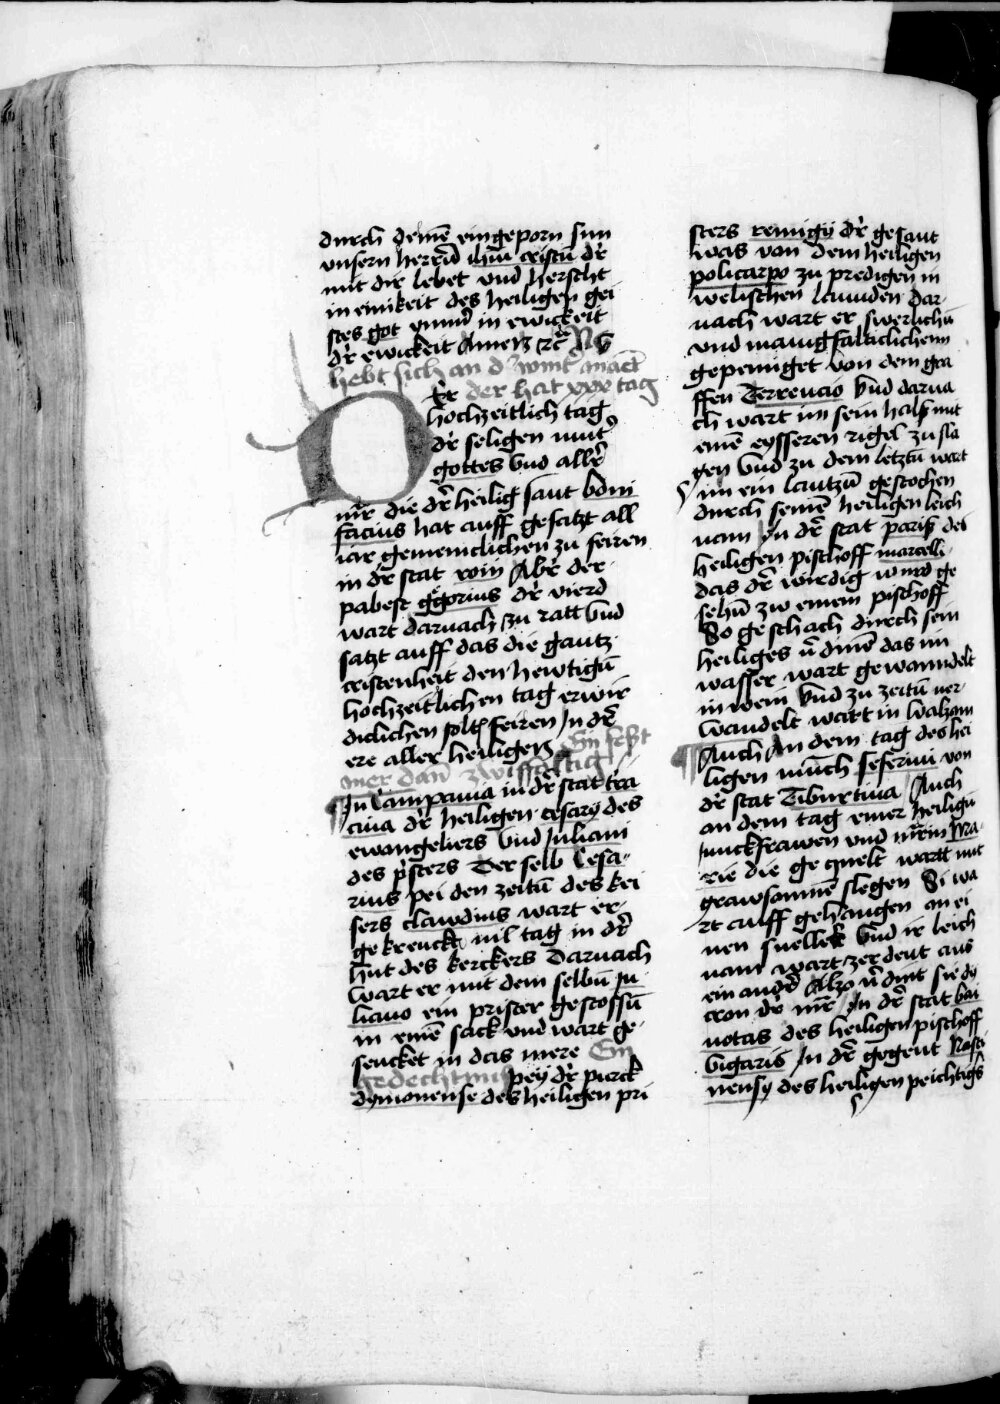 durch deinē eingeporn sun
unsern herrñ ihm̄ cristū dr̄
mit dir lebet und herscht
in einikeit des heiligen gei
stes got ymm̄ in ewickeit
dr̄ ewickeit Amen rc̄
hebt sich an d' wint'manet
der hat xxx tag
Er
hochzeitlich tag
dr̄ seligen mut'
gottes vnd allr̄
mr̄ die dr̄ heilig sant boni
facius hat auff gesatzt all
iar gemeinclichen zu feiren
in dr̄ stat rom Abr̄ der
pabest ggorius dr̄ vierd
wart darnach zu ratt vnd
satzt auff das die gantz
cristenheit den hewtigū
hochzeitlichen tag erwir
diclichen solt feiren In dr̄
ere aller heiligen Ein fest
mer dan zwifeltig
In Campania in dr̄ stat tra
cina dr̄ heiligen cesary des
ewangeliers vnd Juliani
des p'sters Der selb Cesa-
rius pei den zeitū des kei
sers clawdius wart er-
gekrenckt vil tag in dr̄
hut des kerckers Darnach
wart er mit dem selbū Ju
liano ein prister gestossū
in einē sack und wart ge-
sencket in das mere Ein
gedechtniß pey dr̄ purck
dymonense des heiligen pri
sters remigy dr̄ gesant
was von dem heiligen
policarpo zu predigen in
welischen lannden dar-
nach wart er swerlichū
und manigfalticlichenn
gepeiniget von dem gra
ffen Terrencio vnd darna
ch wart im sein halß mit
einē eysseren rigel zu sla
gen vnd zu dem letztū wart
im ein lantzū gestochen
durch seinē heiligen leich
nam In dr̄ stat pariß des
heiligen pischoff marcelli
das dr̄ wirdig wurd ge
sehū zw einem pischoff
So geschach durch sein
heiliges v̄dinē das im
wasser wart gewanndelt
in wein vnd zu zeitū ver-
wandelt wart in walzam
Auch An dem tag des hei
ligen münch seferini von
dr̄ stat Tiburtina Auch
an dem tag einer heiligū
junckfrawen vnd mr̄in Ma-
rie die gequelt wartt mit
grawsamnē slegen Si wa
rt auff gehangen an ei
nen snellek vnd ir leich
nam wart zerdent aus
ein andr̄ Alzo v̄dint sie dy
cron dr̄ mr̄ In dr̄ stat bai
notas des heiligen pischoff
vigaris In dr̄ gegent
nensy des heiligen peichtigs